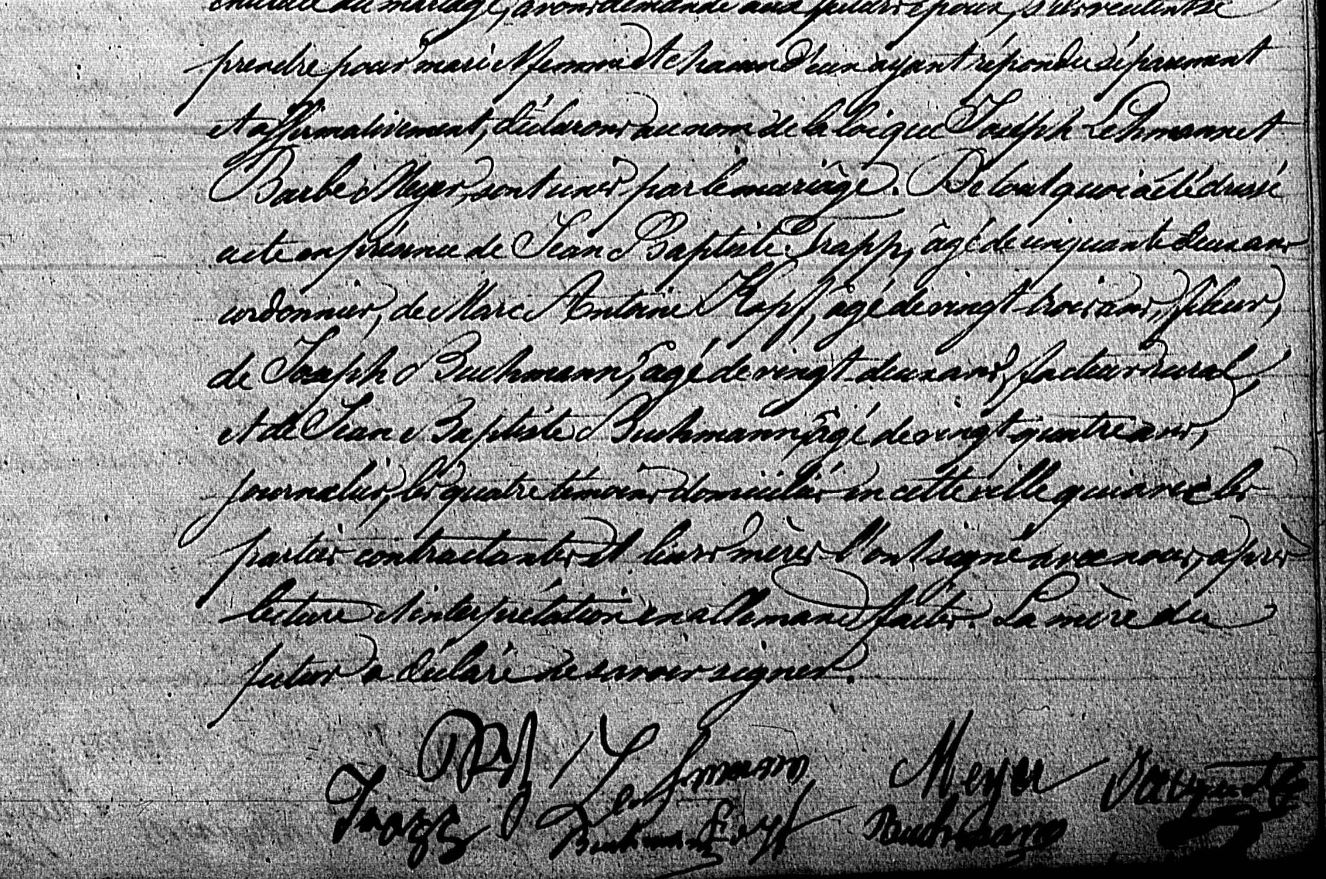 du mariage, avons demandé aux futurs époux s'ils veulent se
prendre pour mari et femme et chacun d'eux ayant répondu séparément
et affirmativement, déclarons au nom de la loi que Joseph Lehmann et
Barbe Meyer, sont unis par le mariage. De tout quoi a été dressé
acte en présence de Jean Baptiste Trapp, âgé de cinquante deux ans
cordonnier, de Marc Antoine Kapf, âgé de vingt trois ans, fileur,
de Joseph Buchmann, âgé de vingt deux ans, facteur rural,
et de Jean Baptiste Buchmann, âgé de vingt quatre ans,
journalier, les quatre témoins domiciliés en cette ville qui avec les
parties contractantes et leurs mères l'ont signé avec nous, après
lecture et interprétation en allemand faites. La mère du
futur a déclaré ne savoir signer.
Lehmann Meyer
Trapp Buchmann Buchmann